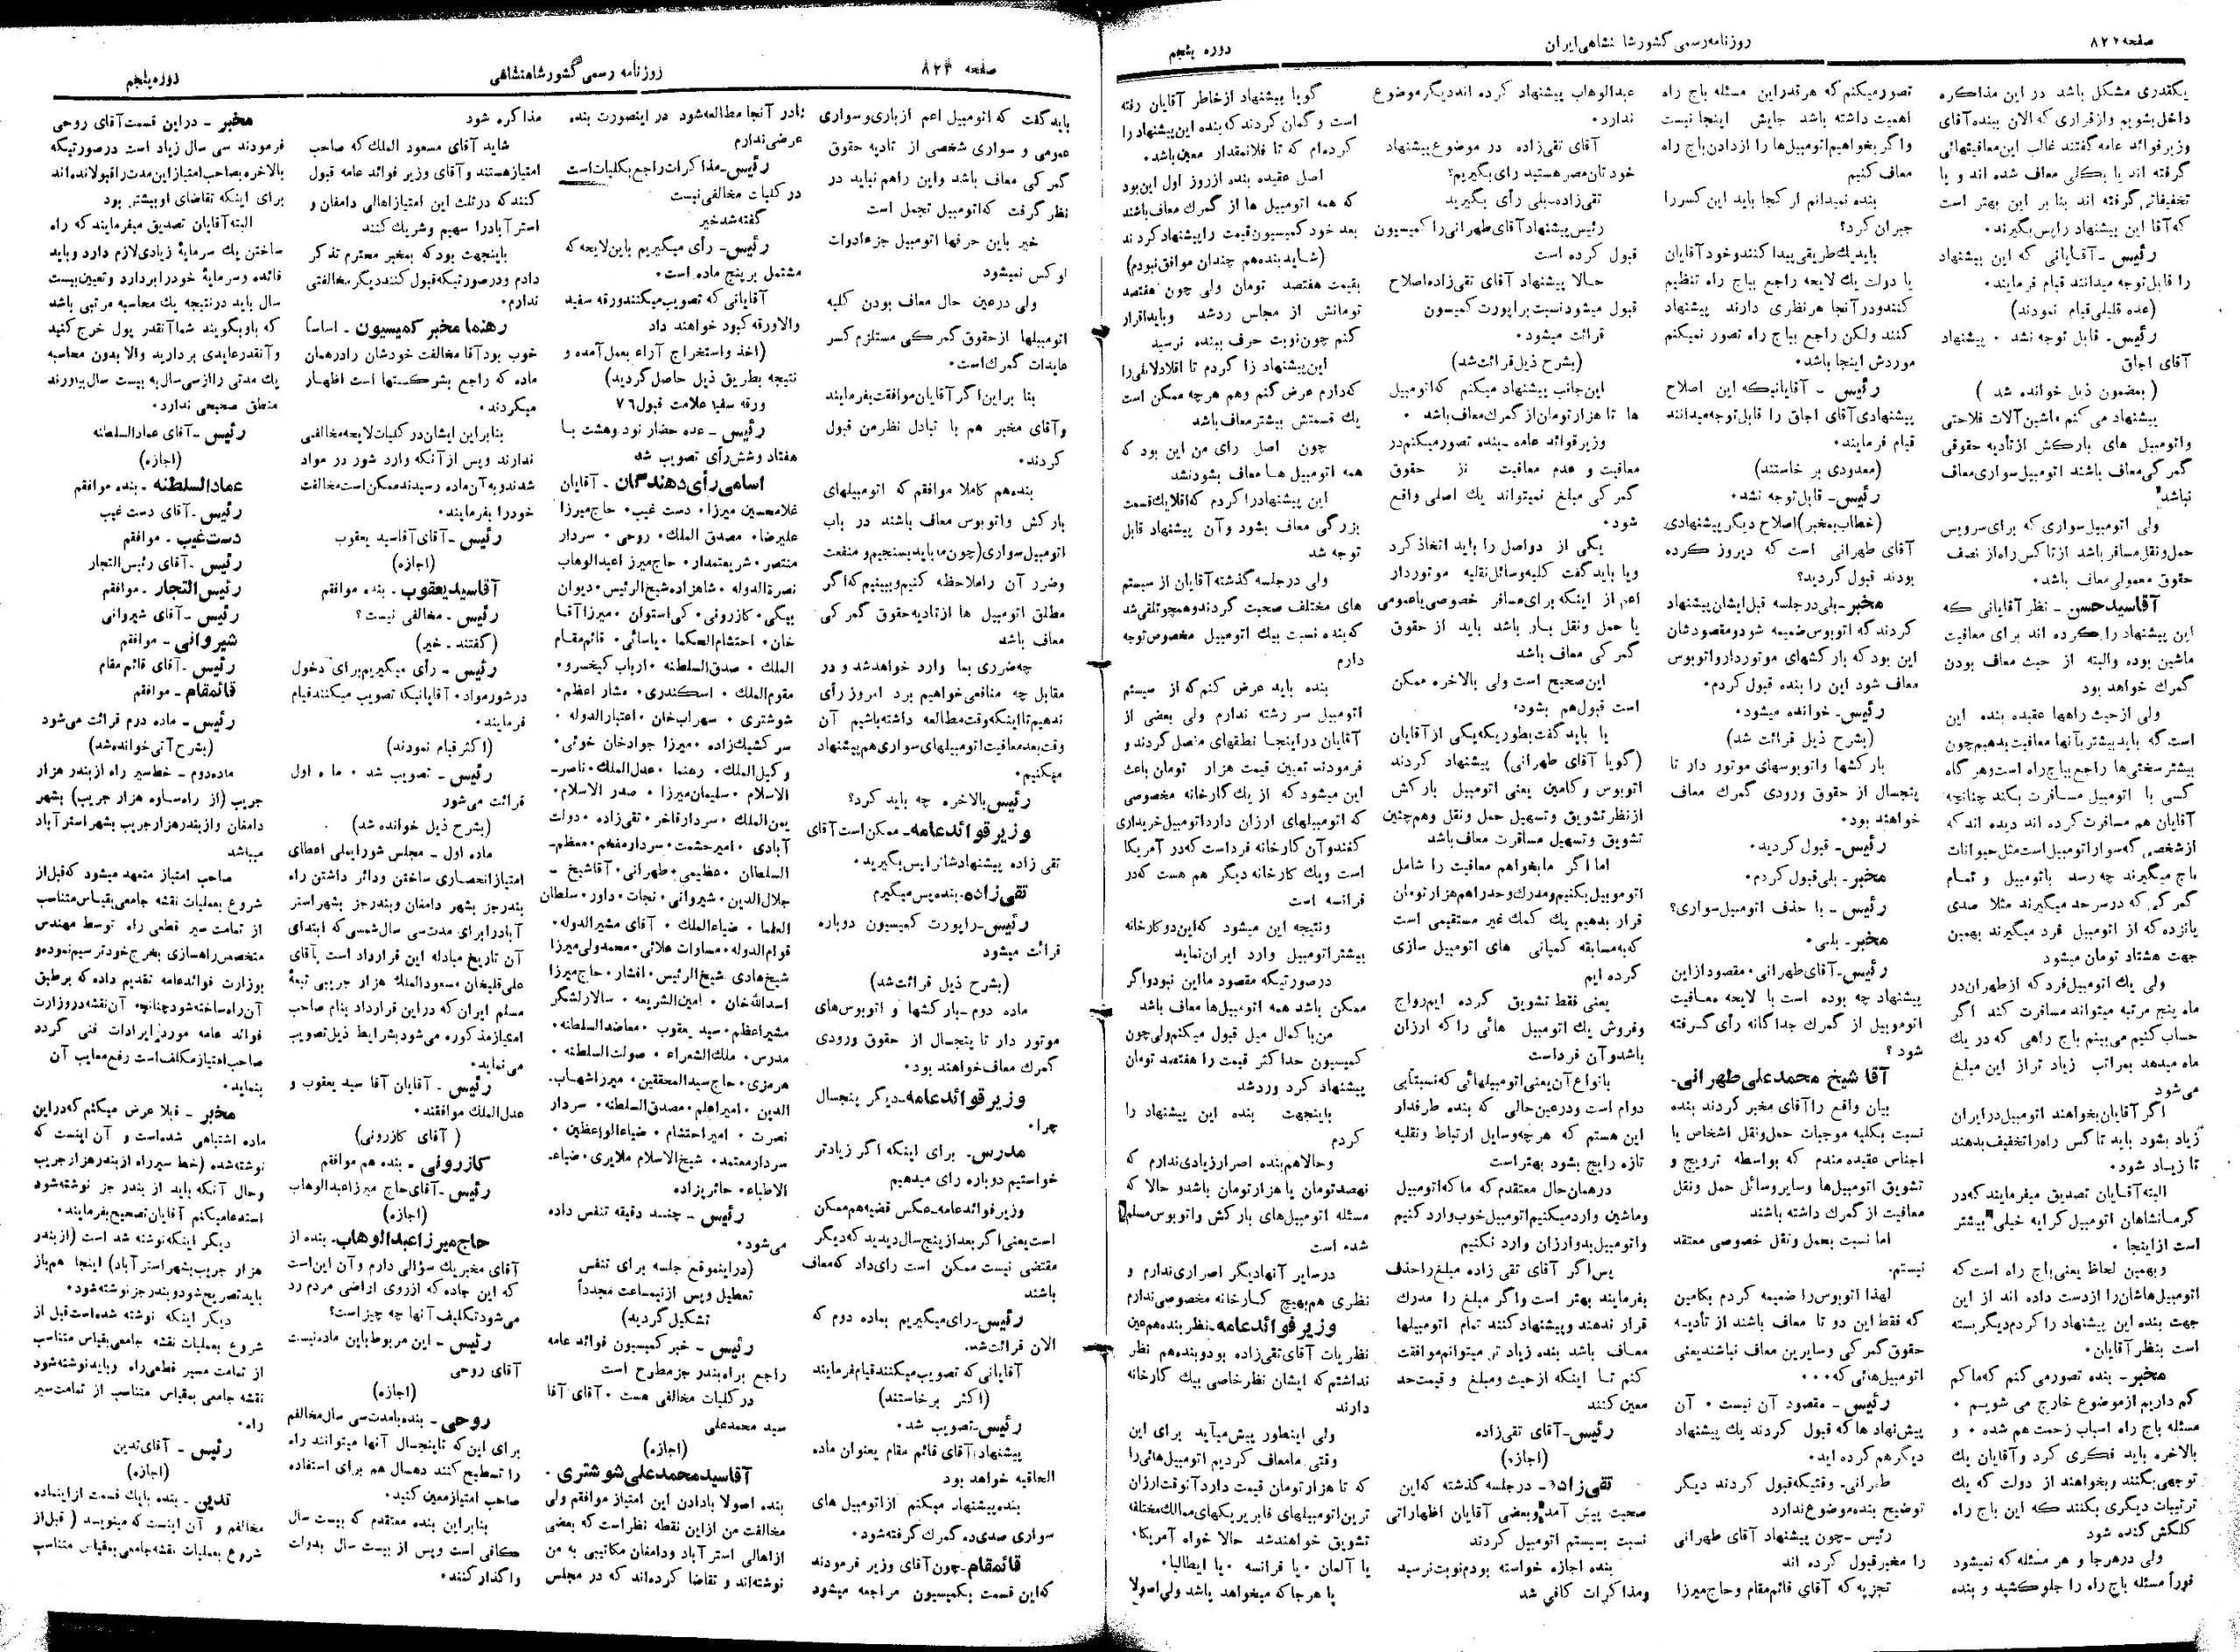 صفحه ۸۲۲
روزنامه رسمی کشور شاهنشاهی ایران
دوره پنجم
یکقدری مشکل باشد در این مذاکره
داخل بشویم و از قراری که الان ببنده آقای
وزیر فوائد عامه گفتند غالب این معافیتهائی
گرفته اند یا بکلی معاف شده اند و یا
تخفیفاتی گرفته اند بنا بر این بهتر است
که آقا این پیشنهاد را پس بگیرند.
رئیس - آقایانی که این پیشنهاد
را قابل توجه میدانند قیام فرمایند.
(عده قلیلی قیام نمودند)
رئیس - قابل توجه نشد . پیشنهاد
آقای اجاق
(بمضمون ذیل خوانده شد)
پیشنهاد می کنم ماشین آلات فلاحتی
و اتومبیل های بارکش از تأدیه حقوقی
گمرکی معاف باشند اتومبیل سواری معاف
نباشد
ولی اتومبیل سواری که برای سرویس
حمل و نقل مسافر باشد از تاکس راه از نصف
حقوق معمولی معاف باشد.
آقا سید حسن - نظر آقایانی که
این پیشنهاد را کرده اند برای معافیت
ماشین بوده والبته از حیث معاف بودن
گمرک خواهد بود
ولی از حیث راهها عقیده بنده این
است که باید بیشتر بآنها معافیت بدهیم چون
بیشتر سختی ها راجع بباج راه است و هر گاه
کسی با اتومبیل مسافرت بکند چنانچه
آقایان هم مسافرت کرده اند دیده اند که
از شخصی که سوار اتومبیل است مثل حیوانات
باج میگیرند چه رسد باتومبیل و تمام
گمرکی که در سرحد میگیرند مثلا صدی
پانزده که از اتومبیل فرد میگیرند بهمین
جهت هشتاد تومان میشود
ولی یك اتومبیل فرد که از طهران در
ماه پنج مرتبه میتواند مسافرت کند اگر
حساب کنیم می بینم باج راهی که در یك
ماه میدهد بمراتب زیاد تر از این مبلغ
می شود
اگر آقایان بخواهند اتومبیل در ایران
زیاد بشود باید تاکس راه را تخفیف بدهند
تا زیاد شود.
البته آقایان تصدیق میفرمایند که در
کرمانشاهان اتومبیل کرایه خیلی بیشتر
است از اینجا .
و بهمین لحاظ یعنی باج راه است که
اتومبیل هاشان را از دست داده اند از این
جهت بنده این پیشنهاد را کردم دیگر بسته
است بنظر آقایان.
مخبر - بنده تصور می کنم که ما کم
کم داریم از موضوع خارج می شویم .
مسئله باج راه اسباب زحمت هم شده . و
بالاخره باید فکری کرد و آقایان یك
توجهی بکنند و بخواهند از دولت که یك
ترتیبات دیگری بکنند که این باج راه
کلکش کنده شود
ولی در هرجا و هر مسئله که نمیشود
فوراً مسئله باج راه را جلو کشید و بنده
تصور میکنم که هر قدر این مسئله باج راه
اهمیت داشته باشد جایش اینجا نیست
و اگر بخواهیم اتومبیل ها را از دادن باج راه
معاف کنیم
بنده نمیدانم از کجا باید این کسر را
جبران کرد؟
باید یك طریقی پیدا کنند و خود آقایان
یا دولت یك لایحه راجع بباج راه تنظیم
کنند و در آنجا هر نظری دارند پیشنهاد
کنند ولکن راجع بباج راه تصور نمیکنم
موردش اینجا باشد.
رئیس - آقایانیکه این اصلاح
پیشنهادی آقای اجاق را قابل توجه میدانند
قیام فرمایند.
(معدودی بر خاستند)
رئیس - قابل توجه نشد.
(خطاب بمخبر) اصلاح دیگر پیشنهادی
آقای طهرانی است که دیروز کرده
بودند قبول کردید؟
مخبر - بلی در جلسه قبل ایشان پیشنهاد
کردند که اتوبوس ضمیمه شود و مقصودشان
این بود که بارکشهای موتوردار و اتوبوس
معاف شود این را بنده قبول کردم.
رئیس - خوانده میشود.
(بشرح ذیل قرائت شد)
بارکشها و اتوبوسهای موتور دار تا
پنجسال از حقوق ورودی گمرک معاف
خواهند بود.
رئیس - قبول کردید.
مخبر - بلی قبول کردم.
رئیس - با حذف اتومبیل سواری؟
مخبر - بلی.
رئیس - آقای طهرانی . مقصود از این
پیشنهاد چه بوده است با لایحه معافیت
اتوموبیل از گمرک جداگانه رأی گرفته
شود ؟
آقا شیخ محمد علی طهرانی -
بیان واقع را آقای مخبر کردند بنده
نسبت بکلیه موجبات حمل و نقل اشخاص یا
اجناس عقیده مندم که بواسطه ترویج و
تشویق اتومبیل ها و سایر وسائل حمل و نقل
معافیت از گمرک داشته باشند
اما نسبت بحمل و نقل خصوصی معتقد
نیستم.
لهذا اتوبوس را ضمیمه کردم بکامین
که فقط این دو تا معاف باشند از تأدیه
حقوق گمرکی و سایرین معاف نباشند یعنی
اتومبیل هائی که...
رئیس - مقصود آن نیست . آن
پیش نهادها که قبول کردند یك پیشنهاد
دیگر هم کرده اید.
طهرانی - وقتیکه قبول کردند دیگر
توضیح بنده موضوع ندارد
رئیس - چون پیشنهاد آقای طهرانی
را مخبر قبول کرده اند
تجزیه که آقای قائم مقام و حاج میرزا
عبدالوهاب پیشنهاد کرده اند دیگر موضوع
ندارد.
آقای تقی زاده در موضوع پیشنهاد
خودتان مصر هستید رای بگیریم؟
تقی زاده - بلی رأی بگیرید
رئیس پیشنهاد آقای طهرانی را کمیسیون
قبول کرده است
حالا پیشنهاد آقای تقی زاده اصلاح
قبول میشود نسبت بر اپورت کمیسون
قرائت میشود.
(بشرح ذیل قرائت شد)
این جانب پیشنهاد میکنم که اتومبیل
ها تا هزار تومان از گمرک معاف باشد .
وزیر فوائد عامه - بنده تصور میکنم در
معافیت و عدم معافیت از حقوق
گمرکی مبلغ نمیتواند یك اصلی واقع
شود.
یکی از دواصل را باید اتخاذ کرد
و یا باید گفت کلیه وسائل نقلیه موتوردار
اعم از اینکه برای مسافر خصوصی یا عمومی
یا حمل و نقل بار باشد باید از حقوق
گمرکی معاف باشد
این صحیح است ولی بالاخره ممکن
است قبول هم بشود.
یا باید گفت بطوریکه یکی از آقایان
(گویا آقای طهرانی) پیشنهاد کردند
اتوبوس و کامین یعنی اتومبیل بارکش
از نظر تشویق و تسهیل حمل و نقل و همچنین
تشویق و تسهیل مسافرت معاف باشد
اما اگر ما بخواهم معافیت را شامل
اتوموبیل بکنیم و مدرک و حد را هم هزار تومان
قرار بدهیم یك کمك غیر مستقیمی است
که به مسابقه کمپانی های اتومبیل سازی
کرده ایم
یعنی فقط تشویق کرده ایم رواج
و فروش یك اتومبیل هائی را که ارزان
باشد و آن فرد است
با نواع آن یعنی اتومبیلهائی که نسبتا بی
دوام است و در عین حالی که بنده طرفدار
این هستم که هر چه وسایل ارتباط و نقلیه
تازه رایج بشود بهتر است
در همان حال معتقدم که ما که اتومبیل
و ماشین وارد میکنیم اتومبیل خوب وارد کنیم
و اتومبیل بد و ارزان وارد نکنیم
پس اگر آقای تقی زاده مبلغ را حذف
بفرمایند بهتر است و اگر مبلغ را مدرک
قرار ندهند و پیشنهاد کنند تمام اتومبیلها
معاف باشد بنده زیاد تر میتوانم موافقت
کنم تا اینکه از حیث و مبلغ و قیمت حد
معین کنند
رئیس - آقای تقی زاده
(اجازه)
تقی زاده - در جلسه گذشته که این
صحبت پیش آمد و بعضی آقایان اظهاراتی
نسبت بسیستم اتومبیل کردند
بنده اجازه خواسته بودم نوبت نرسید
و مذاکرات کافی شد
گویا پیشنهاد از خاطر آقایان رفته
است و گمان کردند که بنده این پیشنهاد را
کرده ام که تا فلانمقدار معین باشد.
اصل عقیده بنده از روز اول این بود
که همه اتومبیل ها از گمرک معاف باشند
بعد خود کمیسیون قیمت را پیشنهاد کردند
(شاید بنده هم چندان موافق نبودم)
بقیمت هفتصد تومان ولی چون هفتصد
تومانش از مجلس رد شد و باید اقرار
کنم چون نوبت حرف ببنده نرسید
این پیشنهاد را کردم تا اقلا دلائلی را
که دارم عرض کنم و هم هر چه ممکن است
یك قسمتش بیشتر معاف باشد
چون اصل رای من این بود که
همه اتومبیل ها معاف بشود نشد
این پیشنهاد را کردم که اقلا یك قسمت
بزرگی معاف بشود و آن پیشنهاد قابل
توجه شد
ولی در جلسه گذشته آقایان از سیستم
های مختلف صحبت کردند و همچو تلقی شد
که بنده نسبت بیك اتومبیل مخصوص توجه
دارم
بنده باید عرض کنم که از سیستم
اتومبیل سر رشته ندارم ولی بعضی از
آقایان در اینجا نطقهای مفصل کردند و
فرمودند تعیین قیمت هزار تومان باعث
این میشود که از یك کارخانه مخصوصی
که اتومبیلهای ارزان دارد اتومبیل خریداری
کنند و آن کارخانه فرد است که در آمریکا
است و یك کارخانه دیگر هم هست که در
فرانسه است
و نتیجه این میشود که این دو کارخانه
بیشتر اتومبیل وارد ایران نماید
در صورتیکه مقصود ما این نبود و اگر
ممکن باشد همه اتومبیل ها معاف باشد
من با کمال میل قبول میکنم ولی چون
کمیسیون حد اکثر قیمت را هفتصد تومان
پیشنهاد کرد و رد شد
باینجهت بنده این پیشنهاد را
کردم
و حالا هم بنده اصرار زیادی ندارم که
نهصد تومان یا هزار تومان باشد و حالا که
مسئله اتومبیل های بارکش و اتوبوس مسلم
شده است
در سایر آنها دیگر اصراری ندارم و
نظری هم بهیچ کارخانه مخصوصی ندارم
وزیر فوائد عامه - نظر بنده هم عین
نظریات آقای تقی زاده بود و بنده هم نظر
نداشتم که ایشان نظر خاصی بیك کارخانه
دارند
ولی اینطور پیش میآید برای این
وقتی ما معاف کردیم اتومبیل هائی را
که تا هزار تومان قیمت دارد آنوقت ارزان
ترین اتومبیلهای فابریکهای ممالک مختلفه
تشویق خواهند شد حالا خواه آمریکا.
یا آلمان . یا فرانسه . یا ایطالیا.
یا هر جا که میخواهد باشد ولی اصولا
صفحه ۸۲۳
روزنامه رسمی کشور شاهنشاهی
دوره پنجم
باید گفت که اتومبیل اعم از باری و سواری
عمومی و سواری شخصی از تأدیه حقوق
گمرکی معاف باشد و این را هم نباید در
نظر گرفت که اتومبیل تجمل است
خیر باین حرفها اتومبیل جزء ادوات
لوکس نمیشود
ولی در عین حال معاف بودن کلیه
اتومبیلها از حقوق گمرکی مستلزم کسر
عایدات گمرک است.
بنا بر این اگر آقایان موافقت بفرمایند
و آقای مخبر هم با تبادل نظر من قبول
کردند.
بنده هم کاملا موافقم که اتومبیلهای
بارکش و اتوبوس معاف باشند در باب
اتومبیل سواری (چون ما باید بسنجیم و منفعت
و ضرر آن را ملاحظه کنیم و ببینیم که اگر
مطلق اتومبیل ها از تادیه حقوق گمرکی
معاف باشد
چه ضرری بما وارد خواهد شد و در
مقابل چه منافعی خواهیم برد امروز رأی
ندهیم تا اینکه وقت مطالعه داشته باشیم آن
وقت بعد معافیت اتومبیلهای سواری هم پیشنهاد
میکنیم.
رئیس بالاخره چه باید کرد؟
وزیر فوائد عامه - ممکن است آقای
تقی زاده پیشنهادشانرا پس بگیرند.
تقی زاده - بنده پس میگیرم
رئیس - راپورت کمیسیون دوباره
قرائت میشود
(بشرح ذیل قرائت شد)
ماده دوم - بارکشها و اتوبوس های
موتور دار تا پنجسال از حقوق ورودی
گمرک معاف خواهند بود.
وزیر فوائد عامه - دیگر پنجسال
چرا.
مدرس - برای اینکه اگر زیادتر
خواستیم دوباره رای میدهیم
وزیر فوائد عامه - عکس قضیه هم ممکن
است یعنی اگر بعد از پنج سال دیدید که دیگر
مقتضی نیست ممکن است رای داد که معاف
باشند
رئیس - رای میگیریم بماده دوم که
الان قرائت شد.
آقایانی که تصویب میکنند قیام فرمایند
(اکثر برخاستند)
رئیس - تصویب شد.
پیشنهاد آقای قائم مقام بعنوان ماده
الحاقیه خواهد بود
بنده پیشنهاد میکنم از اتومبیل های
سواری صدی ده گمرک گرفته شود.
قائمقام - چون آقای وزیر فرمودند
که این قسمت بکمیسیون مراجعه میشود
تا در آنجا مطالعه شود در اینصورت بنده
عرضی ندارم
رئیس - مذاکرات راجع بکلیات است
در کلیات مخالفی نیست
گفته شد خیر
رئیس - رأی میگیریم باین لایحه که
مشتمل بر پنج ماده است.
آقایانی که تصویب میکنند ورقه سفید
والا ورقه کبود خواهند داد
(اخذ و استخراج آراء بعمل آمده و
نتیجه بطریق ذیل حاصل گردید)
ورقه سفید علامت قبول ۷۶
رئیس - عده حضار نود و هشت با
هفتاد و شش رأی تصویب شد
اسامی رأی دهندگان - آقایان
غلامحسین میرزا . دست غیب . حاج میرزا
علیرضا . مصدق الملک . روحی . سردار
منتصر . شریعتمدار . حاج میرزا عبدالوهاب
نصرةالدوله . شاهزاده شیخ الرئیس . دیوان
بیگی . کازرونی . کی استوان . میرزا آقا
خان . احتشام الحکما . یاسائی . قائم مقام
الملک . صدق السلطنه . ارباب کیخسرو .
مقوم الملک . اسکندری . مشار اعظم .
شوشتری . سهراب خان . اعتبار الدوله .
سرکشیک زاده . میرزا جواد خان خوئی .
وکیل الملک . رهنما . عدل الملک . ناصر -
الاسلام . سلیمان میرزا . صدر الاسلام .
یمن الملک . سردار فاخر . تقی زاده . دولت
آبادی . امیر حشمت . سردار مفخم . معظم -
السلطان . عظیمی . طهرانی . آقا شیخ -
جلال الدین . شیروانی . نجات . داور . سلطان
العلما . ضیاء الملک . آقای مشیر الدوله .
قوام الدوله . مساوات علائی . محمد ولی میرزا
شیخ هادی شیخ الرئیس . افشار . حاج میرزا
اسدالله خان . امین الشریعه . سالار لشگر
مشیر اعظم . سید یعقوب . معاضد السلطنه .
مدرس . ملک الشعراء . صولت السلطنه .
هرمزی . حاج سید المحققین . میرزا شهاب -
الدین . امیر اعلم . مصدق السلطنه . سردار
نصرت . امیر احتشام . ضیاء الواعظین .
سردار معتمد . شیخ الاسلام ملایری . ضیاء -
الاطباء . حائری زاده
رئیس - چند دقیقه تنفس داده
می شود.
(در اینموقع جلسه برای تنفس
تعطیل و پس از نیمساعت مجدداً
تشکیل گردید)
رئیس - خبر کمیسیون فوائد عامه
راجع براه بندر جز مطرح است
در کلیات مخالفی هست . آقای آقا
سید محمد علی
(اجازه)
آقا سید محمد علی شوشتری .
بنده اصولا با دادن این امتیاز موافقم ولی
مخالفت من از این نقطه نظر است که بعضی
از اهالی استرآباد و دامغان مکاتیبی به من
نوشته اند و تقاضا کرده اند که در مجلس
مذاکره شود
شاید آقای مسعود الملک که صاحب
امتیاز هستند و آقای وزیر فوائد عامه قبول
کنند که در ثلث این امتیاز اهالی دامغان و
استرآباد را سهیم و شریک کنند
باینجهت بود که بمخبر محترم تذکر
دادم و در صورتیکه قبول کنند دیگر مخالفتی
ندارم.
رهنما مخبر کمیسیون - اساساً
خوب بود آقا مخالفت خودشان را در همان
ماده که راجع بشرکتها است اظهار
میکردند .
بنابر این ایشان در کلیات لایحه مخالفتی
ندارند و پس از آنکه وارد شور در مواد
شدند و به آن ماده رسیدند ممکن است مخالفت
خود را بفرمایند .
رئیس - آقای آقا سید یعقوب
(اجازه)
آقا سید یعقوب - بنده موافقم
رئیس - مخالفی نیست ؟
(گفتند - خیر)
رئیس - رأی میگیریم برای دخول
در شور مواد . آقایانیکه تصویب میکنند قیام
فرمایند.
(اکثر قیام نمودند)
رئیس - تصویب شد . ماده اول
قرائت می شود
(بشرح ذیل خوانده شد)
ماده اول - مجلس شورایملی اعطای
امتیاز انحصاری ساختن و دائر داشتن راه
بندر جز بشهر دامغان و بندر جز بشهر استر
آباد را برای مدت سی سال شمسی که ابتدای
آن تاریخ مبادله این قرارداد است بآقای
علی قلیخان مسعود الملک هزار جریبی تبعهٔ
مسلم ایران که در این قرارداد بنام صاحب
امتیاز مذکوره می شود بشرایط ذیل تصویب
می نماید.
رئیس - آقایان آقا سید یعقوب و
عدل الملک موافقند .
(آقای کازرونی)
کازرونی - بنده هم موافقم
رئیس - آقای حاج میرزا عبدالوهاب
(اجازه)
حاج میرزا عبدالوهاب - بنده از
آقای مخبر یك سؤالی دارم و آن این است
که این جاده که از روی اراضی مردم رد
می شود تکلیف آنها چه چیز است؟
رئیس - این مربوط باین ماده نیست
آقای روحی
(اجازه)
روحی - بنده با مدت سی سال مخالفم
برای این که تا پنجسال آنها میتوانند راه
را تسطیح کنند دهسال هم برای استفاده
صاحب امتیاز معین کنید.
بنابر این بنده معتقدم که بیست سال
کافی است و پس از بیست سال بدولت
واگذار کنند.
مخبر - در این قسمت آقای روحی
فرمودند سی سال زیاد است در صورتیکه
بالاخره بصاحب امتیاز این مدت را قبولانده اند
برای اینکه تقاضای او بیشتر بود
البته آقایان تصدیق میفرمایند که راه
ساختن یك سرمایهٔ زیادی لازم دارد و باید
فائده و سرمایهٔ خود را بردارد و تعیین بیست
سال باید در نتیجه یك محاسبه مرتبی باشد
که باو بگویند شما آنقدر پول خرج کنید
و آنقدر عایدی بردارید والا بدون محاسبه
یك مدتی را از سی سال به بیست سال بیاورند
منطق صحیحی ندارد.
رئیس - آقای عماد السلطنه
(اجازه)
عماد السلطنه - بنده موافقم
رئیس - آقای دست غیب
دست غیب - موافقم
رئیس - آقای رئیس التجار
رئیس التجار - موافقم
رئیس - آقای شیروانی
شیروانی - موافقم
رئیس - آقای قائم مقام
قائمقام - موافقم
رئیس - ماده دوم قرائت می شود
(بشرح آتی خوانده شد)
ماده دوم - خط سیر راه از بندر هزار
جریب (از راه ساوه هزار جریب) بشهر
دامغان و از بندر هزار جریب بشهر استرآباد
میباشد
صاحب امتیاز متعهد میشود که قبل از
شروع بعملیات نقشه جامعی بقیاس متناسب
از تمامت سیر قطعی راه توسط مهندس
متخصص راهسازی بخرج خود ترسیم نموده و
بوزارت فوائد عامه تقدیم داده که بر طبق
آن راه ساخته شود چنانچه آن نقشه در وزارت
فوائد عامه مورد ایرادات فنی گردد
صاحب امتیاز مکلف است رفع معایب آن
بنماید.
مخبر - قبلا عرض میکنم که در این
ماده اشتباهی شده است و آن اینست که
نوشته شده (خط سیر راه از بندر هزار جریب
و حال آنکه باید از بندر جز نوشته شود
استدعا میکنم آقایان تصحیح بفرمایند.
دیگر اینکه نوشته شد است (از بندر
هزار جریب بشهر استرآباد) اینجا هم باز
باید تصریح شود و بندر جز نوشته شود.
دیگر اینکه نوشته شده است قبل از
شروع بعملیات نقشه جامعی بقیاس متناسب
از تمامت مسیر قطعی راه و باید نوشته شود
نقشه جامعی بمقیاس متناسب از تمامت سیر
راه.
رئیس - آقای تدین
(اجازه)
تدین - بنده با یك قسمت از این ماده
مخالفم و آن اینست که مینویسد (قبل از
شروع بعملیات نقشه جامعی بمقیاس متناسب